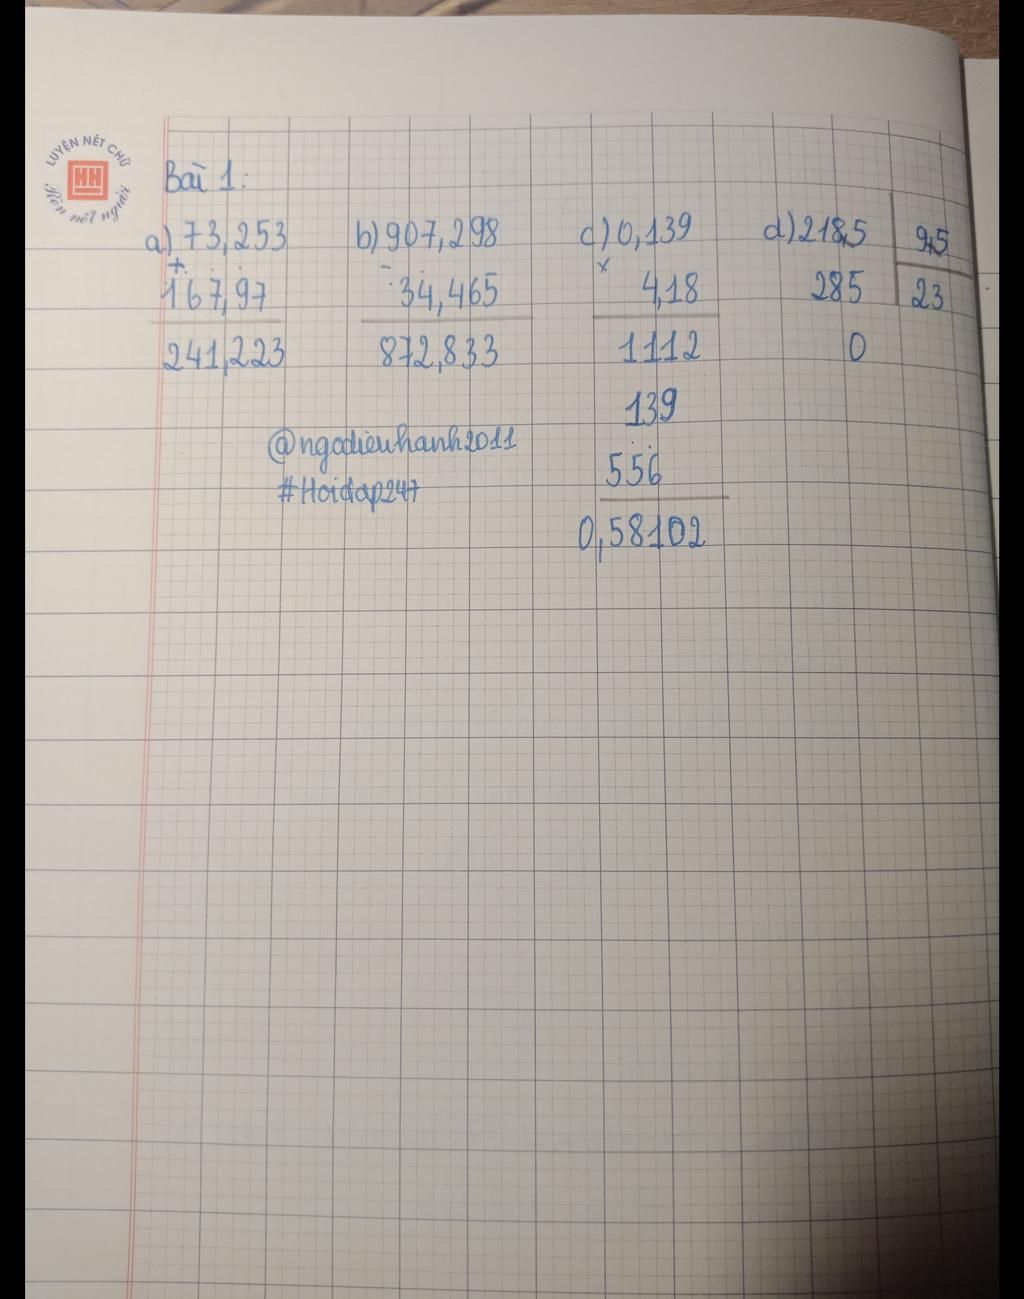 LUYỆN NÉT CHỮ
HH
Rèn nết người
Bài 1:
a) 73,253 b) 907,298 c) 0,139 d) 218,5 9,5
+ - x
167,97 34,465 4,18 285 23
241,223 872,833 1112 0
139
@ngodieuhanh2011
556
#Hoidap247
0,58102